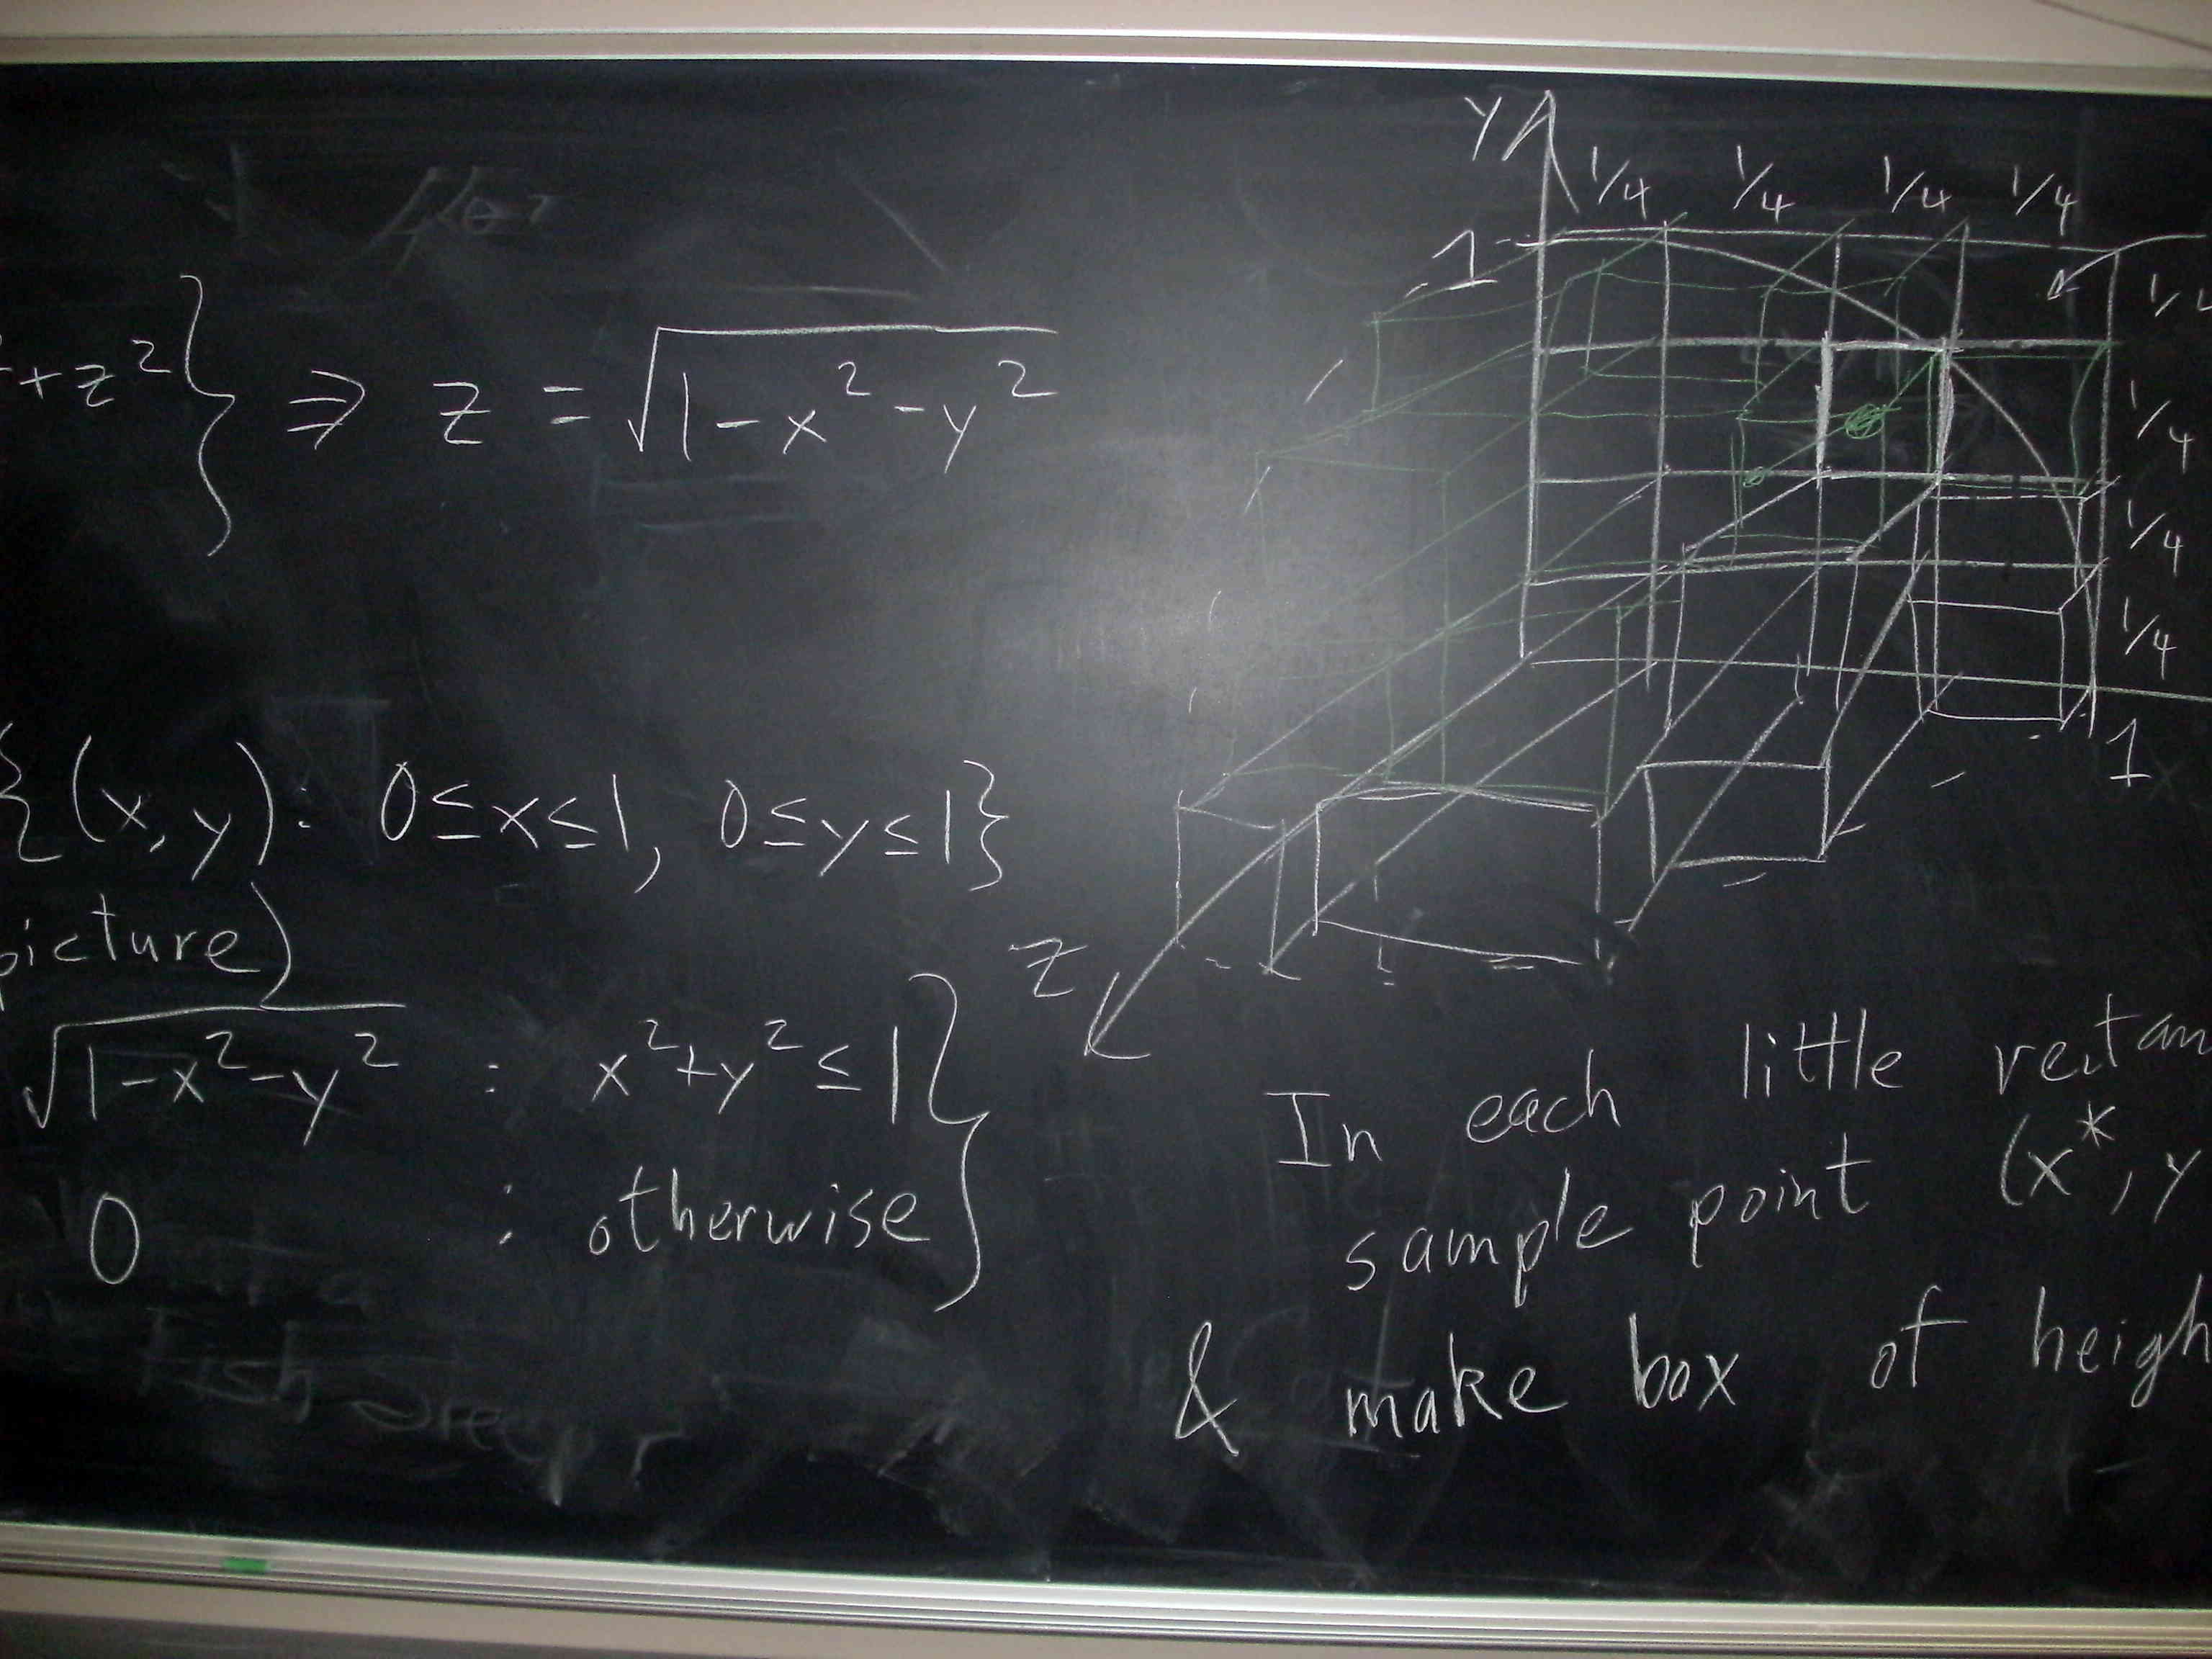 + z² } ⇒ z = √(1 - x² - y²)
{(x, y) : 0 ≤ x ≤ 1, 0 ≤ y ≤ 1}
picture)
√(1 - x² - y²) : x² + y² ≤ 1 }
0 : otherwise
Y
1/4 1/4 1/4 1/4
1
1/4
1/4
1/4
1
z
In each little rectan
sample point (x*, y
& make box of heigh